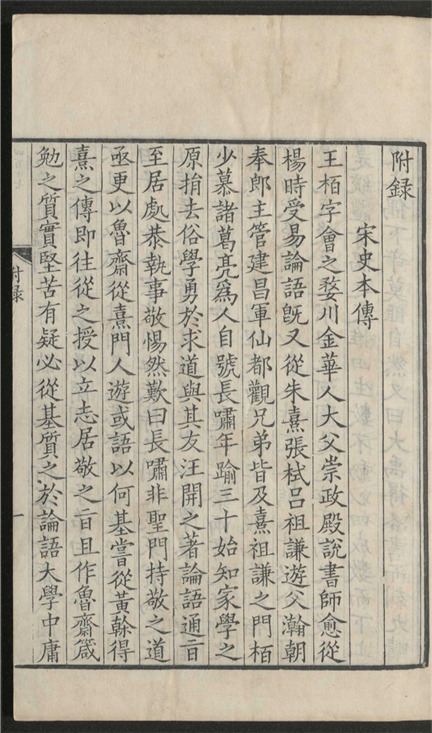 附録
宋史本傳
王栢字會之婺川金華人大父崇政殿説書師愈從
楊時受易論語旣又從朱熹張栻呂祖謙遊父瀚朝
奉郎主管建昌軍仙都觀兄弟皆及熹祖謙之門栢
少慕諸葛亮爲人自號長嘯年踰三十始知家學之
原捐去俗學勇於求道與其友汪開之著論語通旨
至居處恭執事敬惕然歎曰長嘯非聖門持敬之道
亟更以魯齋從熹門人遊或語以何基嘗從黃榦得
熹之傳即往從之授以立志居敬之旨且作魯齋箴
勉之質實堅苦有疑必從基質之於論語大學中庸
附録
一